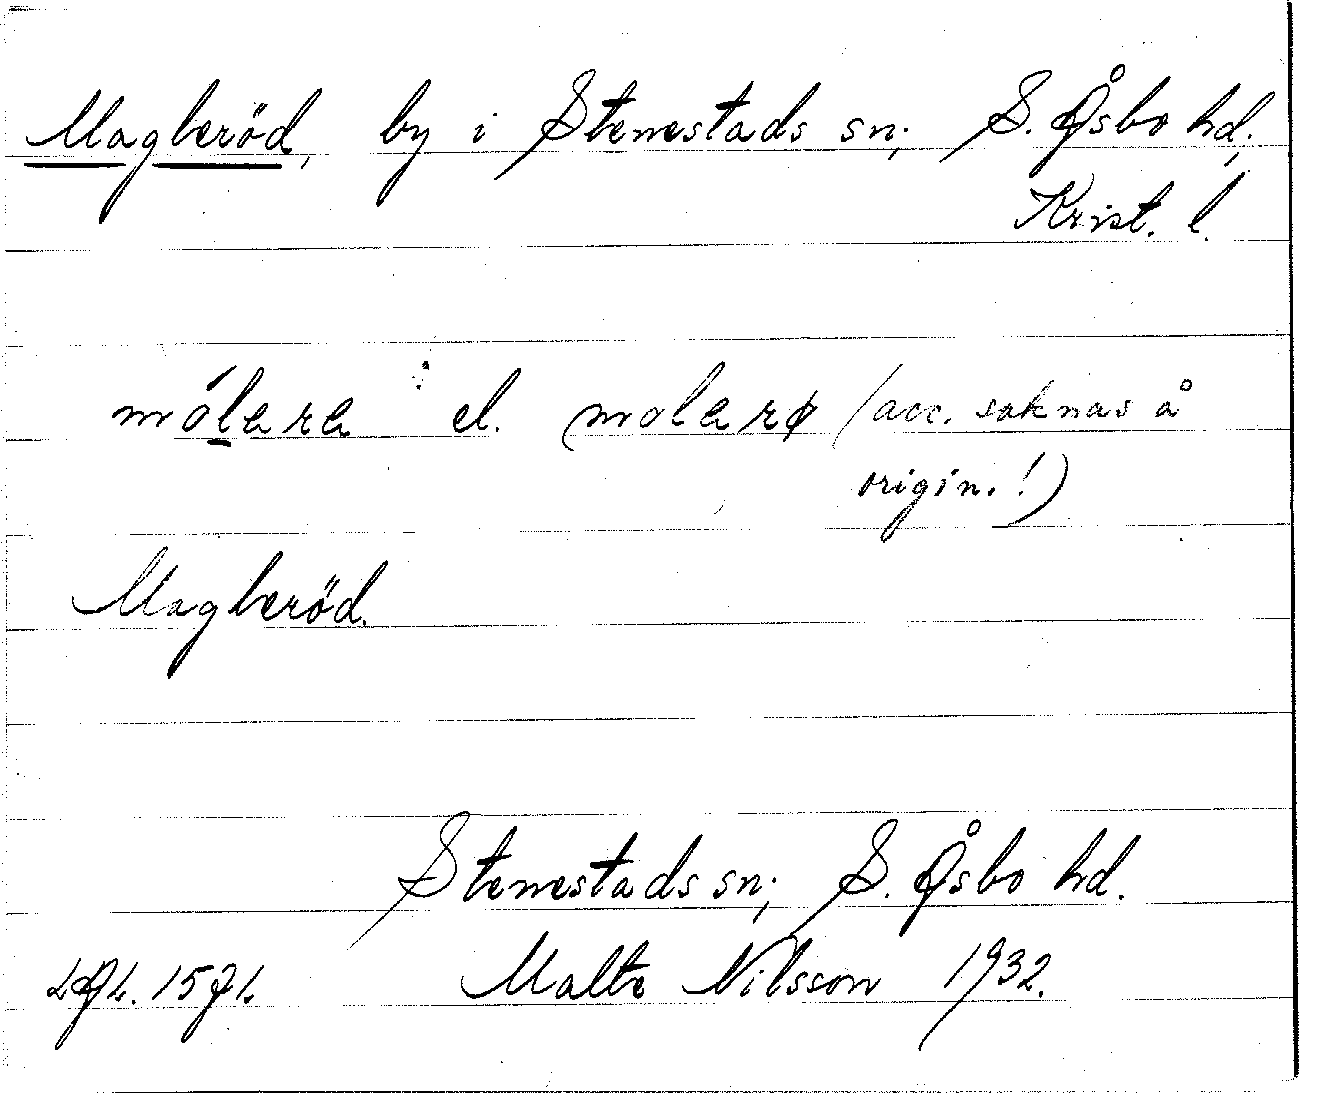 Magleröd, by i Stenestads sn; S. Åsbo hd;
Krist. l.
el. (acc. saknas å
origin.!)
Magleröd.
Stenestads sn; S. Åsbo hd.
Malte Nilsson 1932.